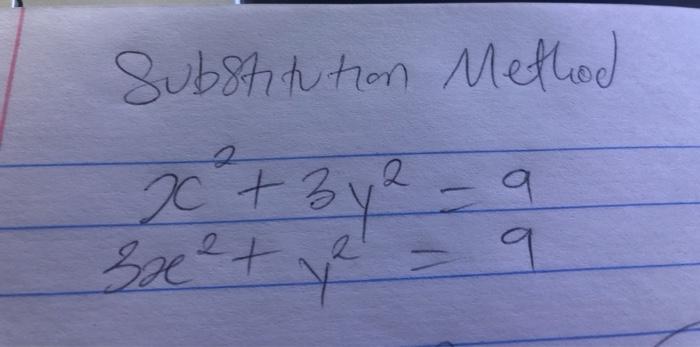 Substitution Method
x² + 3y² = 9
3x² + y² = 9